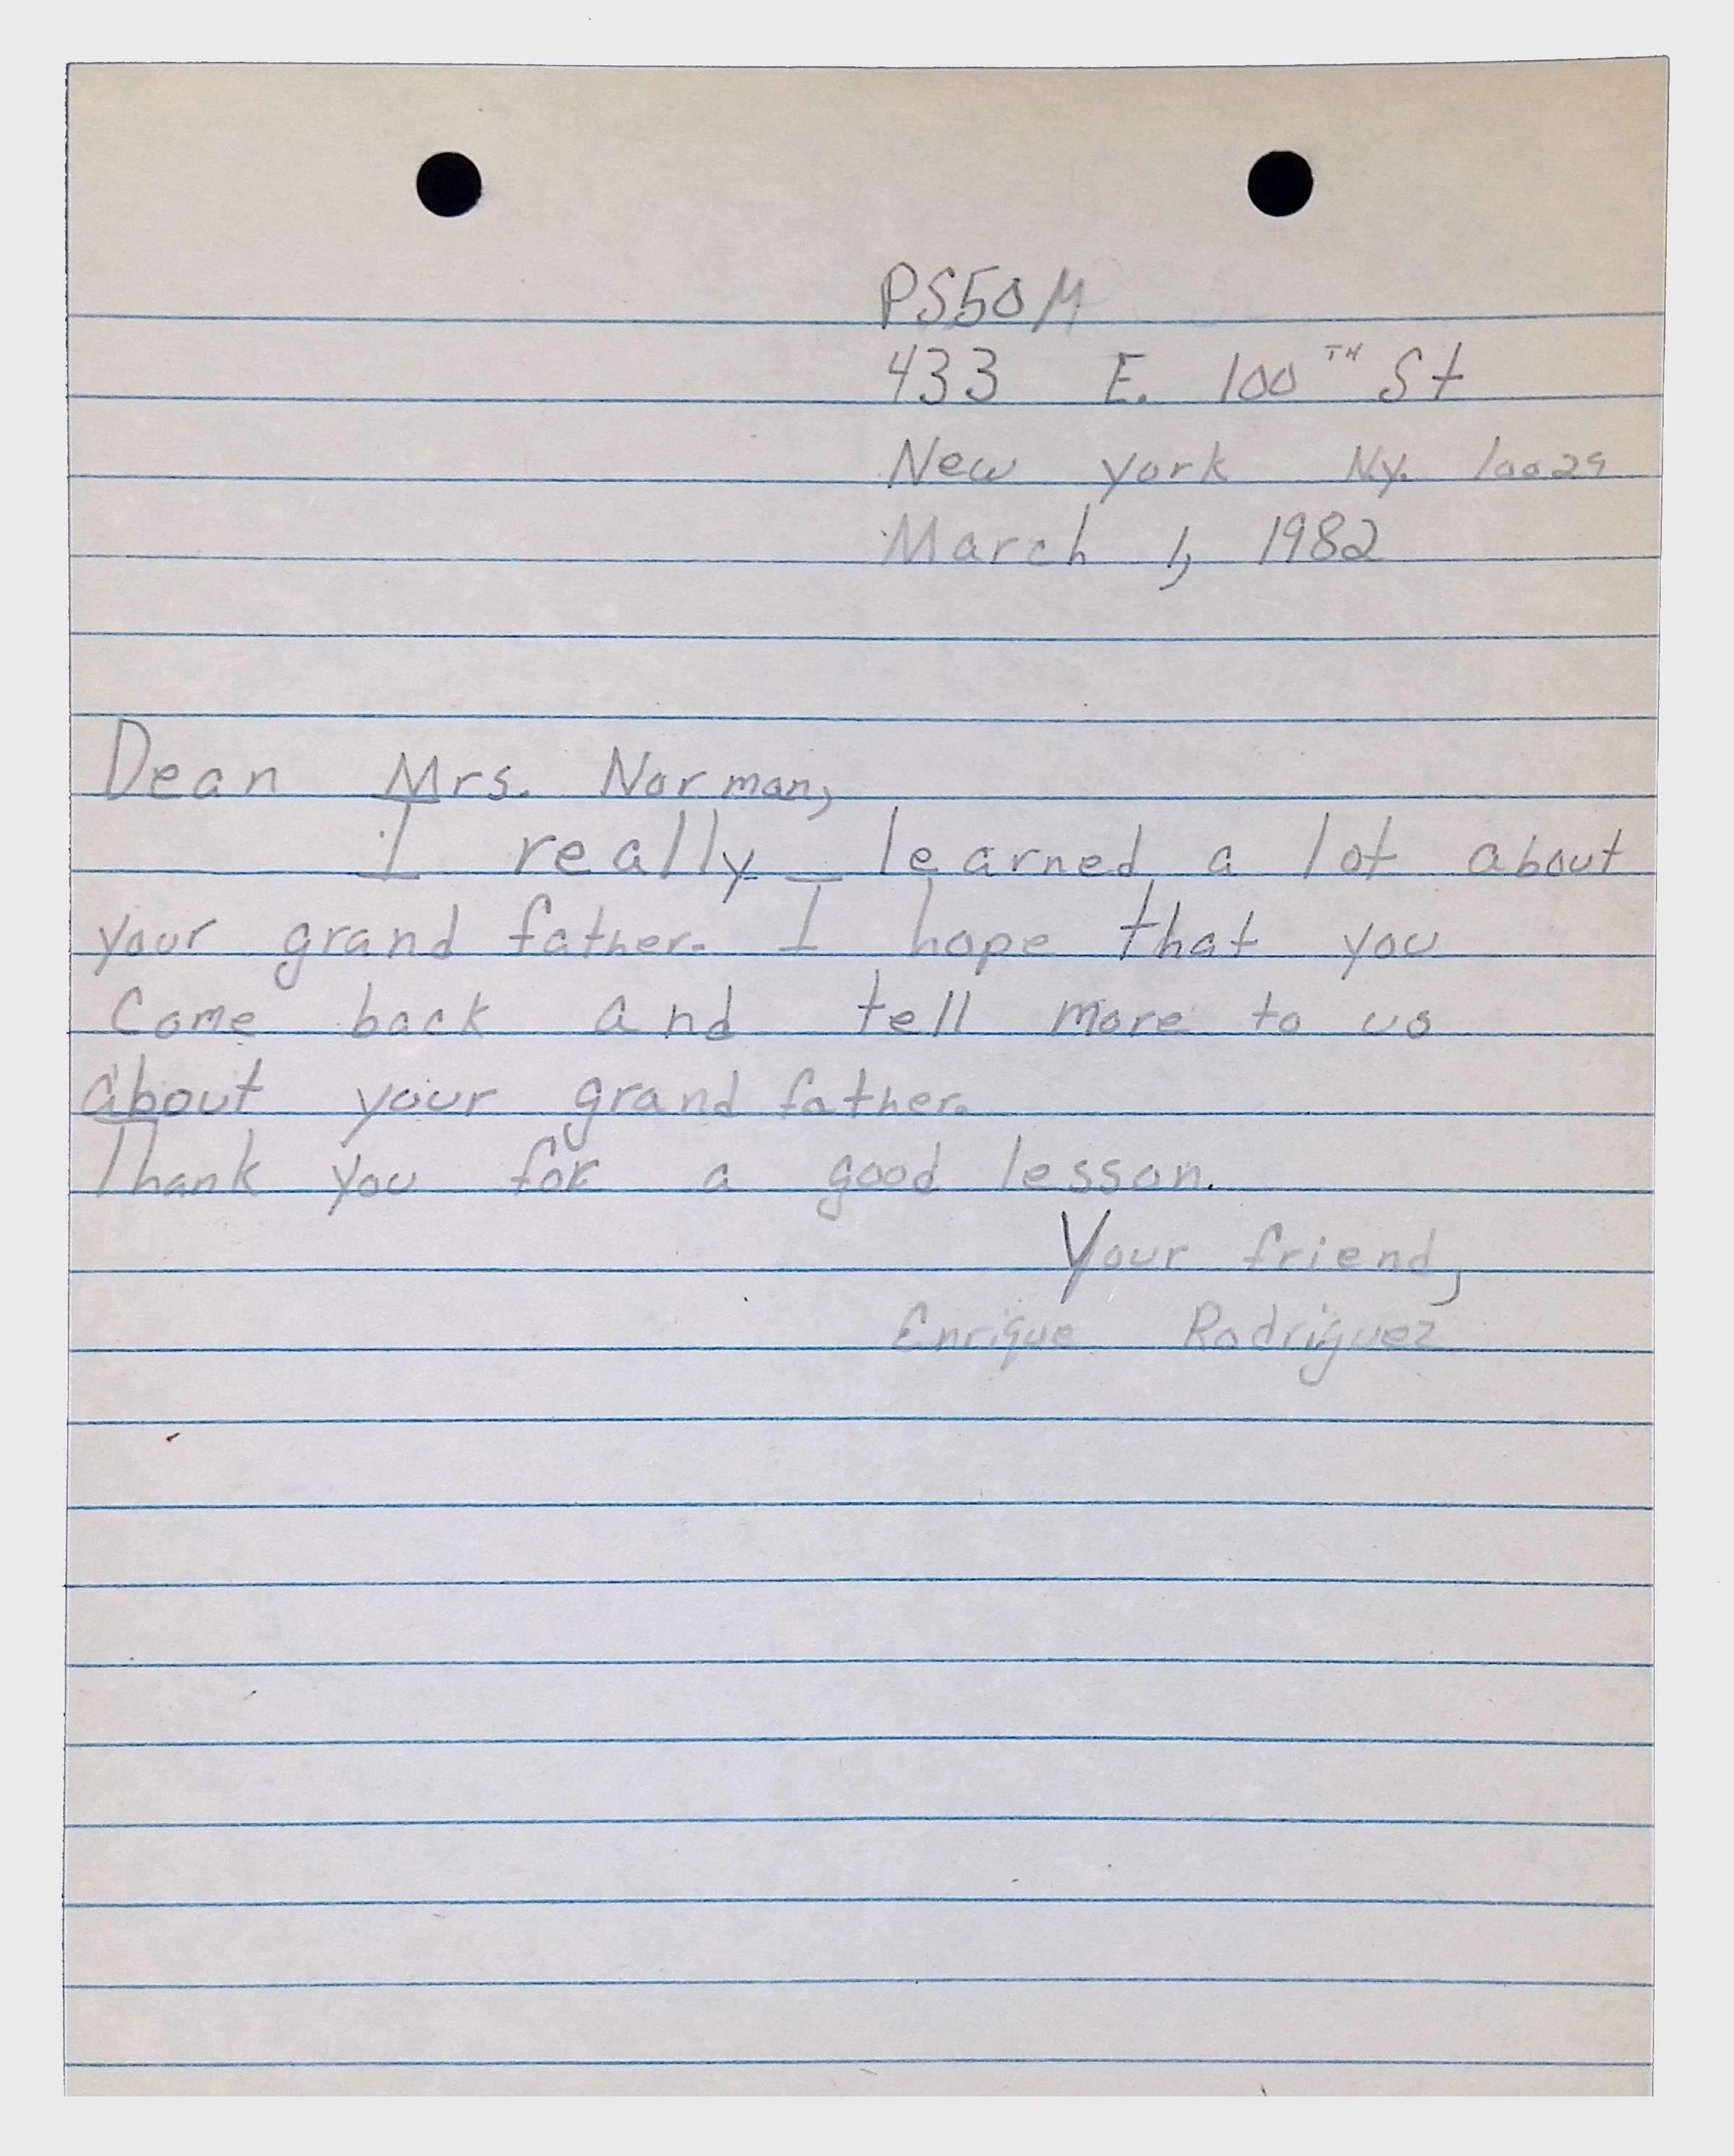 PS50M
433 E. 100TH St
New york N.y. 10029
March 1, 1982
Dean Mrs. Norman,
I really learned a lot about
your grand father. I hope that you
Come back and tell more to us
about your grand father.
Thank you for a good lesson.
Your friend,
Enrique Rodriguez